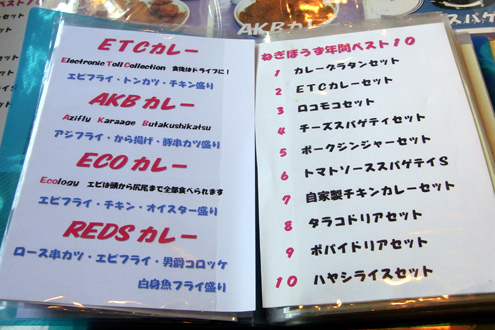 ETCカレー
Electronic Toll Collection 食後はドライブに!
エビフライ・トンカツ・チキン盛り
AKBカレー
Azifly Karaage Butakushikatsu
アジフライ・から揚げ・豚串カツ盛り
ECOカレー
Ecology エビは頭から尻尾まで全部食べられます
エビフライ・チキン・オイスター盛り
REDSカレー
ロース串カツ・エビフライ・男爵コロッケ
白身魚フライ盛り
AKBカレー
ねぎぼうず年間ベスト10
1 カレーグラタンセット
2 ETCカレーセット
3 ロコモコセット
4 チーズスパゲティセット
5 ポークジンジャーセット
6 トマトソーススパゲテイS
7 自家製チキンカレーセット
8 タラコドリアセット
9 ポパイドリアセット
10 ハヤシライスセット